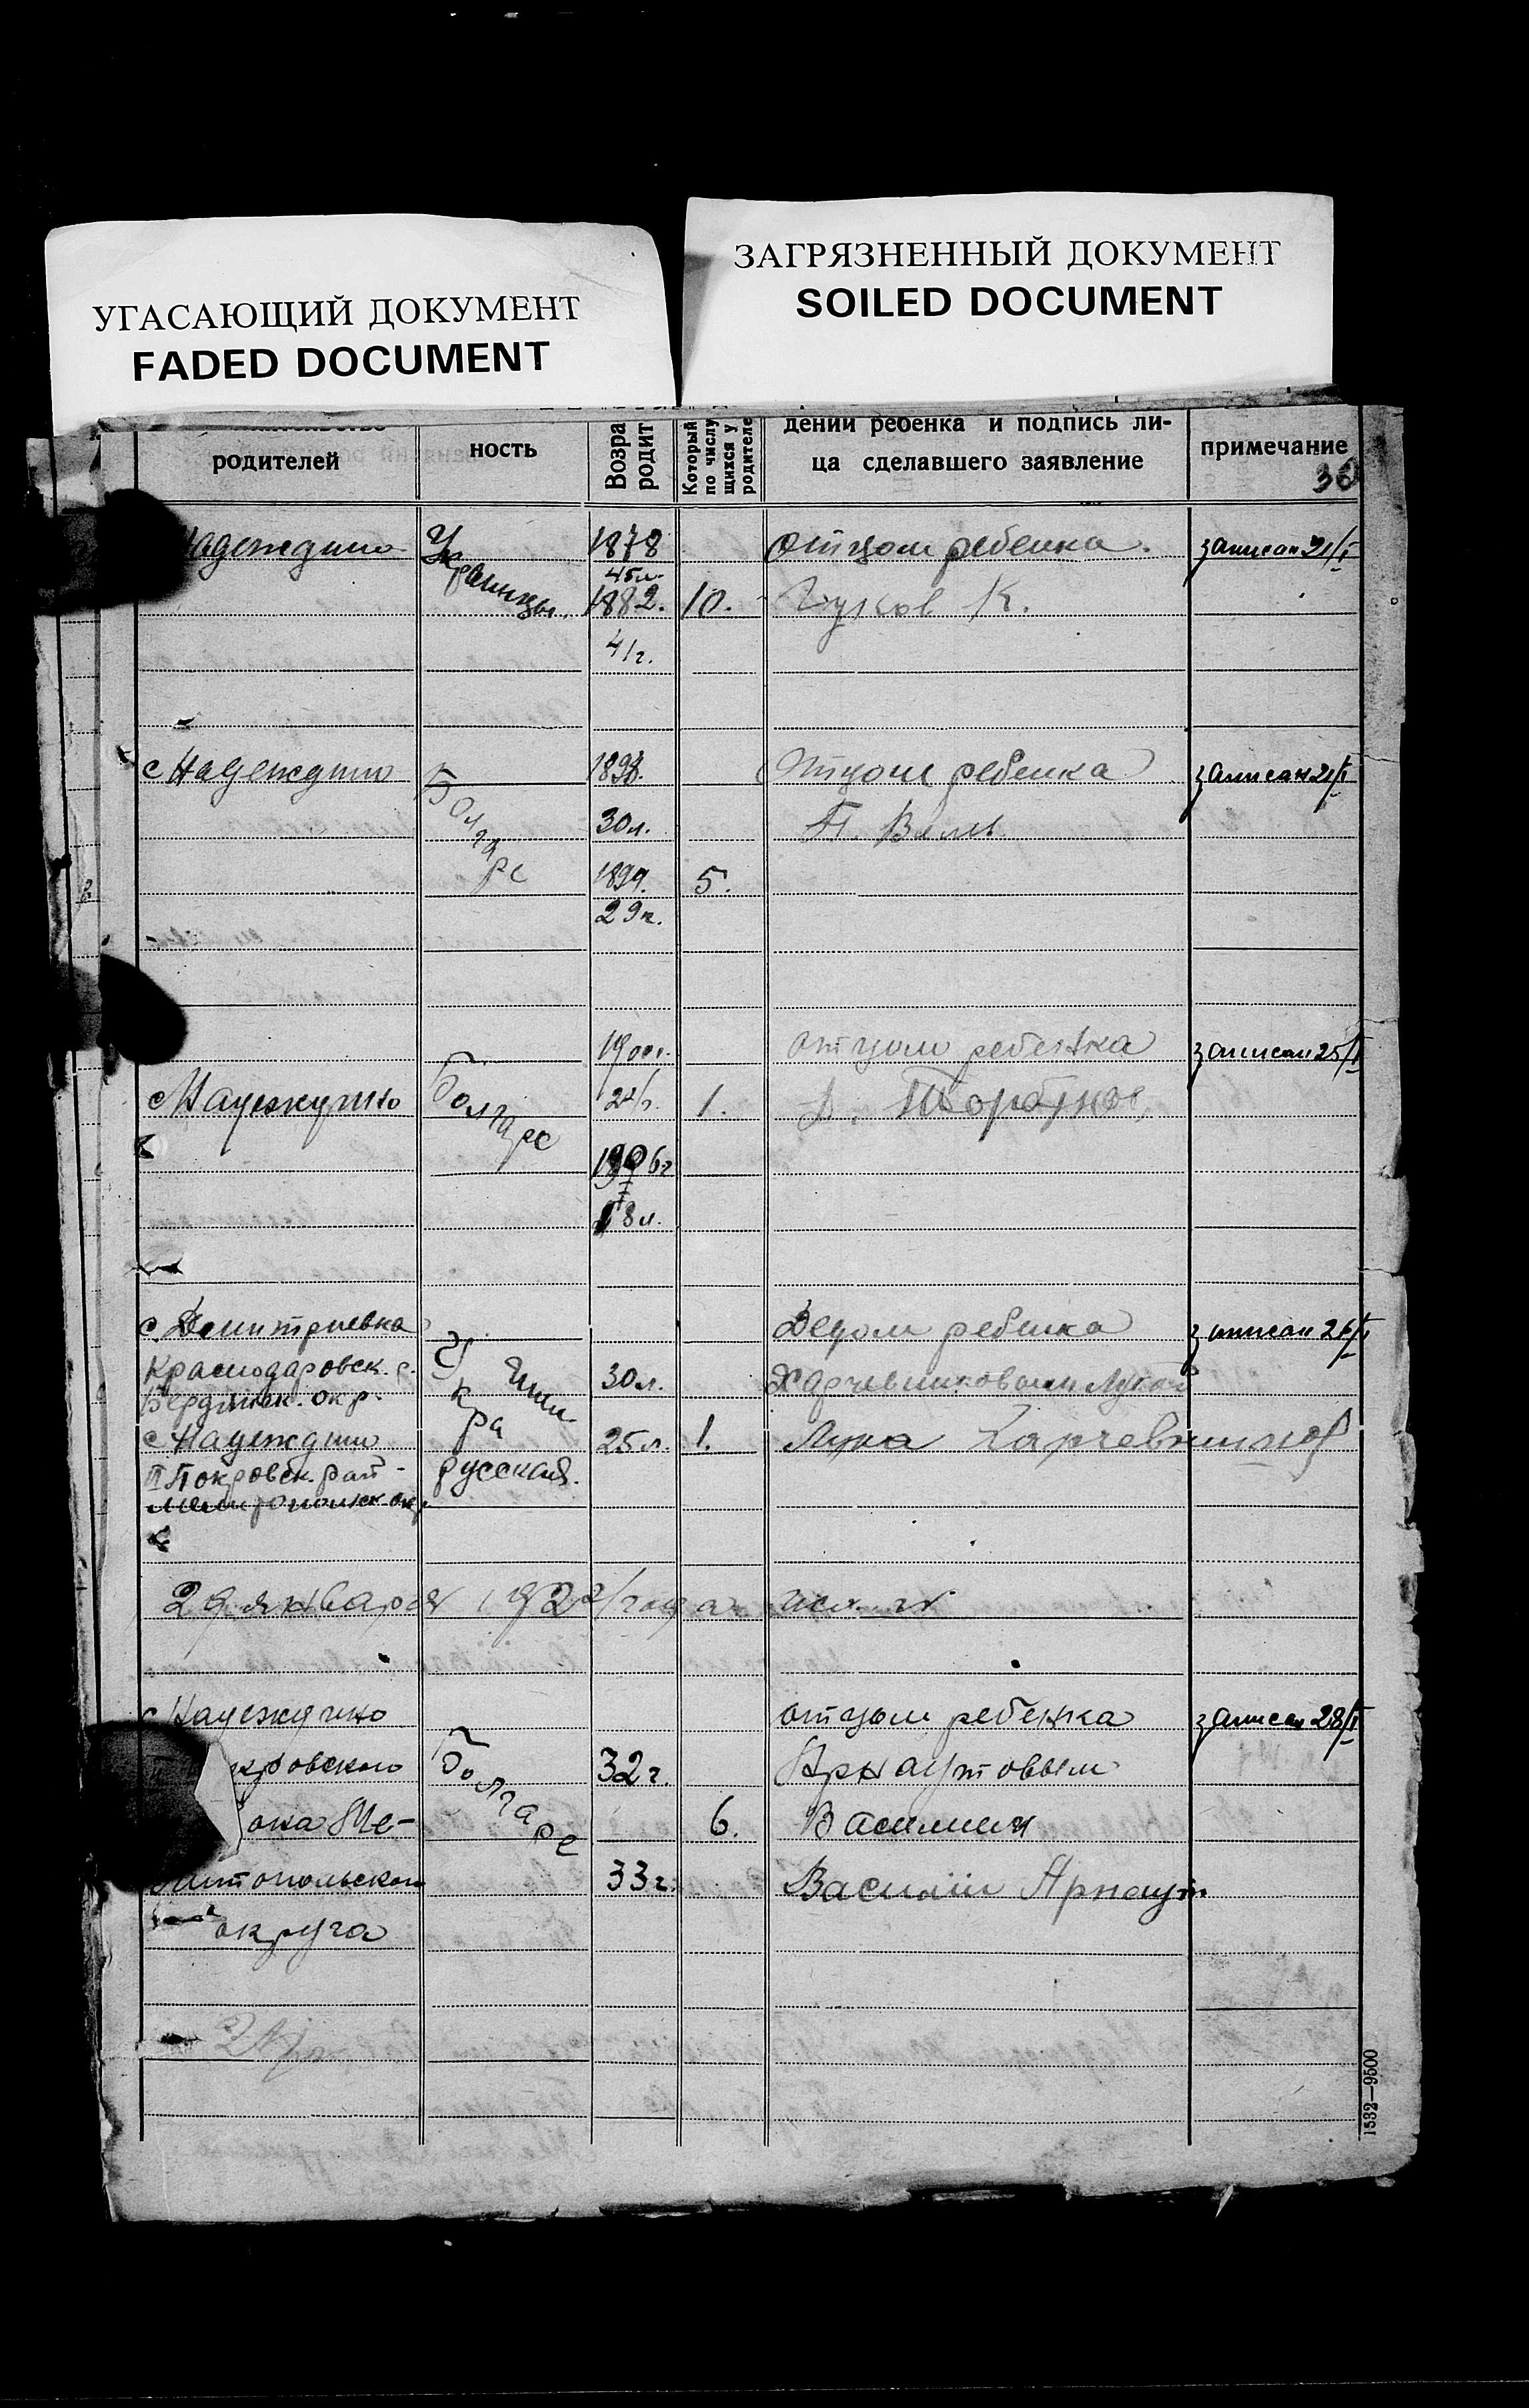 УГАСАЮЩИЙ ДОКУМЕНТ
FADED DOCUMENT
ЗАГРЯЗНЕННЫЙ ДОКУМЕНТ
SOILED DOCUMENT
родителей
ность
Возра
родит
Который
по числу
щихся у
родителе
дении ребенка и подпись ли-
ца сделавшего заявление
примечание
30
Надеждино
Украинцы
1878
45л.
1882.
41г.
10.
Отцом ребенка.
К.
записан 21/I
с Надеждино
Болгаре
30л.
1894.
29л.
5.
Отцом ребенка
П.
записан 21/I
с Надеждино
Болгаре
1900г.
1.
18л.
отцом ребенка
записан 25/I
с. Дмитриевка
Краснодаровск. р.
Бердянск. окр.
с Надеждино
II Покровск. рай-
Мелитопольск окр.
Украин.
русская.
30л.
25л.
1.
Дедом ребенка
Харчевниковым Лукой
Лука Харчевников
записан 26/I
29 января 192 года
с Надеждино
кровского
она Ме-
литопольского
округа
Болгаре
32г.
33г.
6.
отцом ребенка
Арнаутовым
Василием
Василий Арнаут
записан 28/I
1532—9500